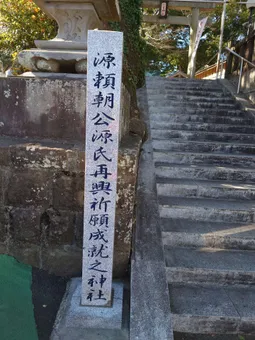 源頼朝公源氏再興祈願成就之神社